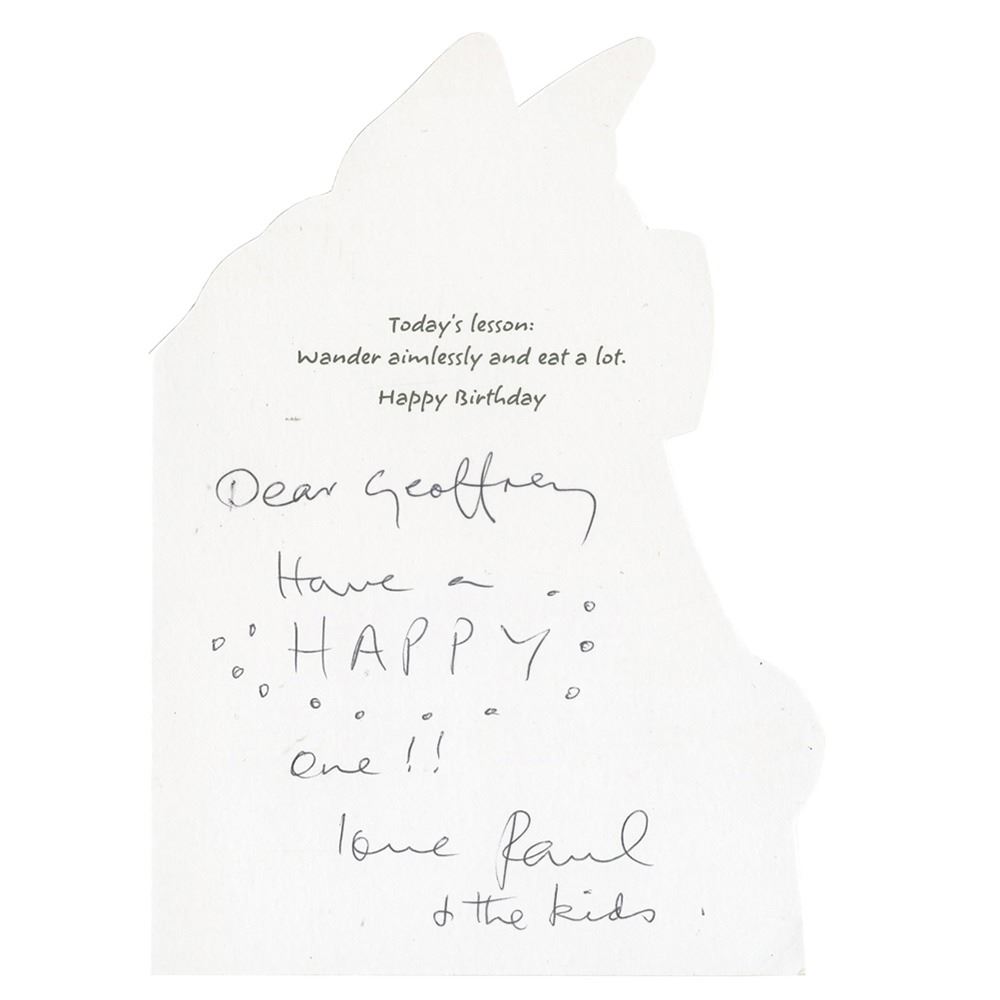 Today's lesson:
Wander aimlessly and eat a lot.
Happy Birthday
Dear Geoffrey
Have a
HAPPY
one!!
love Paul
& the kids.